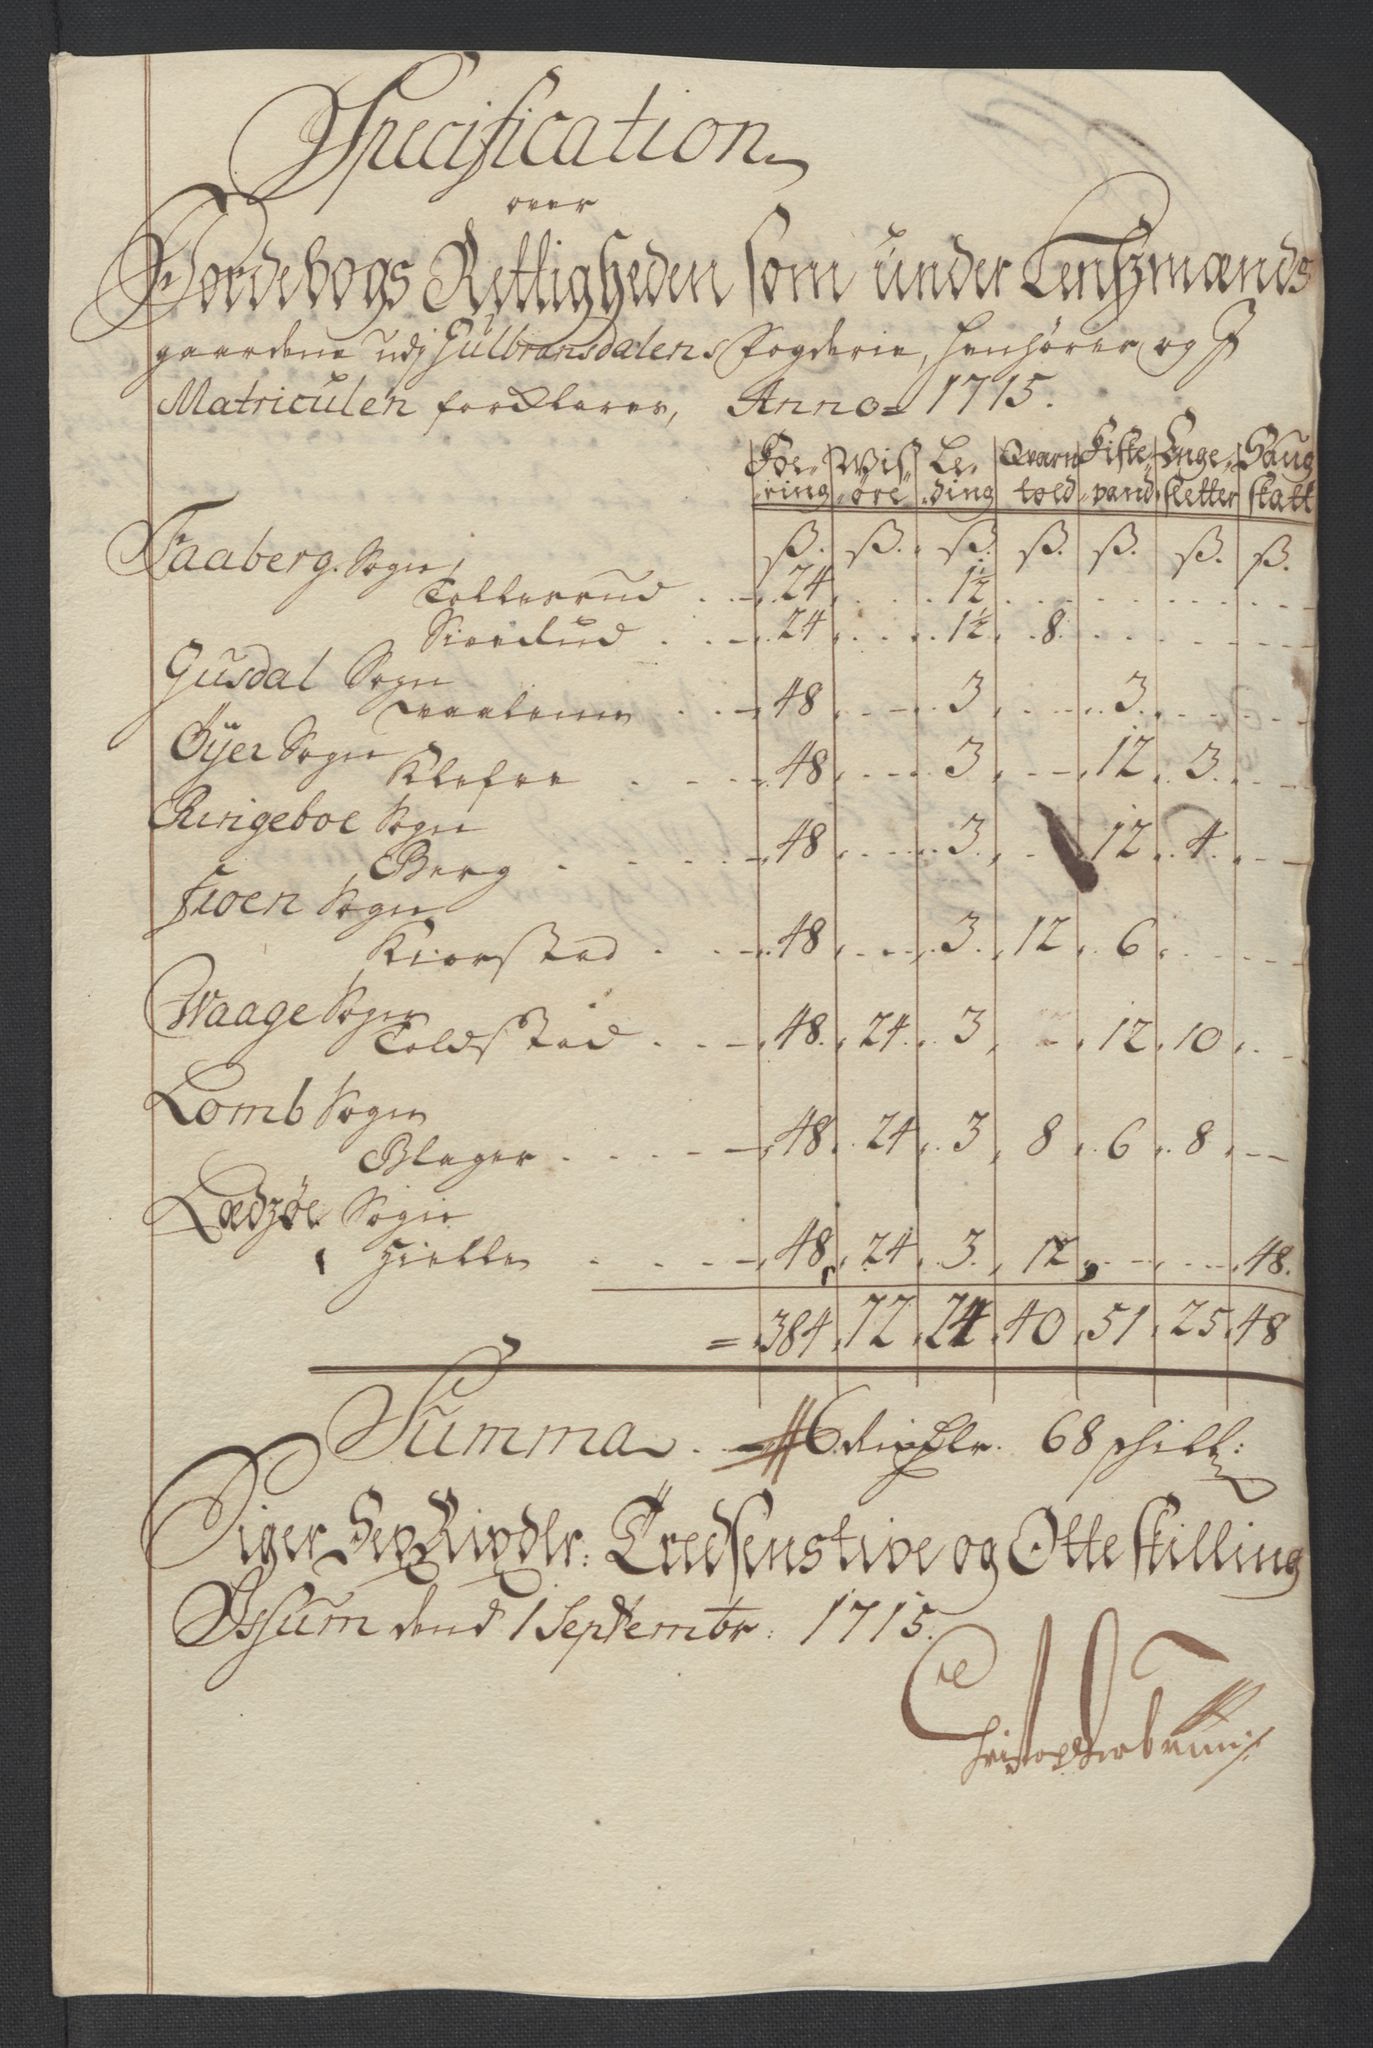 Specification
over
Jordebogs Rettigheden som under Lenszmands
gaardene udj Gulbransdalens Fogderie, henhører og J
Matriculen forklarer, Anno= 1715.
Foe- Wis- Le- Qvarn Fiske- Enge- Saug
ring øre ding told vand sletter skatt
ß. ß. ß. ß. ß. ß. ß.
Faaberg. Sogn
Tollerud 24 1½
24 1½ 8
Gusdal Sogn
48 3 3
Öÿer Sogn
48 3 12 3
Ringeboe Sogn
Berg 48 3 12 4
Froen Sogn
Kiorstad 48 3 12 6
Waage Sogn
Toldstad 48 24 3 12 10
Lomb Sogn
Blager 48 24 3 8 6 8
Lædzöe Sogn
Hielle 48 24 3 12 48.
= 384 72 24 40 51 25 48
Summa 6 Rixdlr. 68 skill:
Siger Sex Rixdlr: Tredsenstive og Otte skilling
Jssum dend 1 Septembr: 1715.